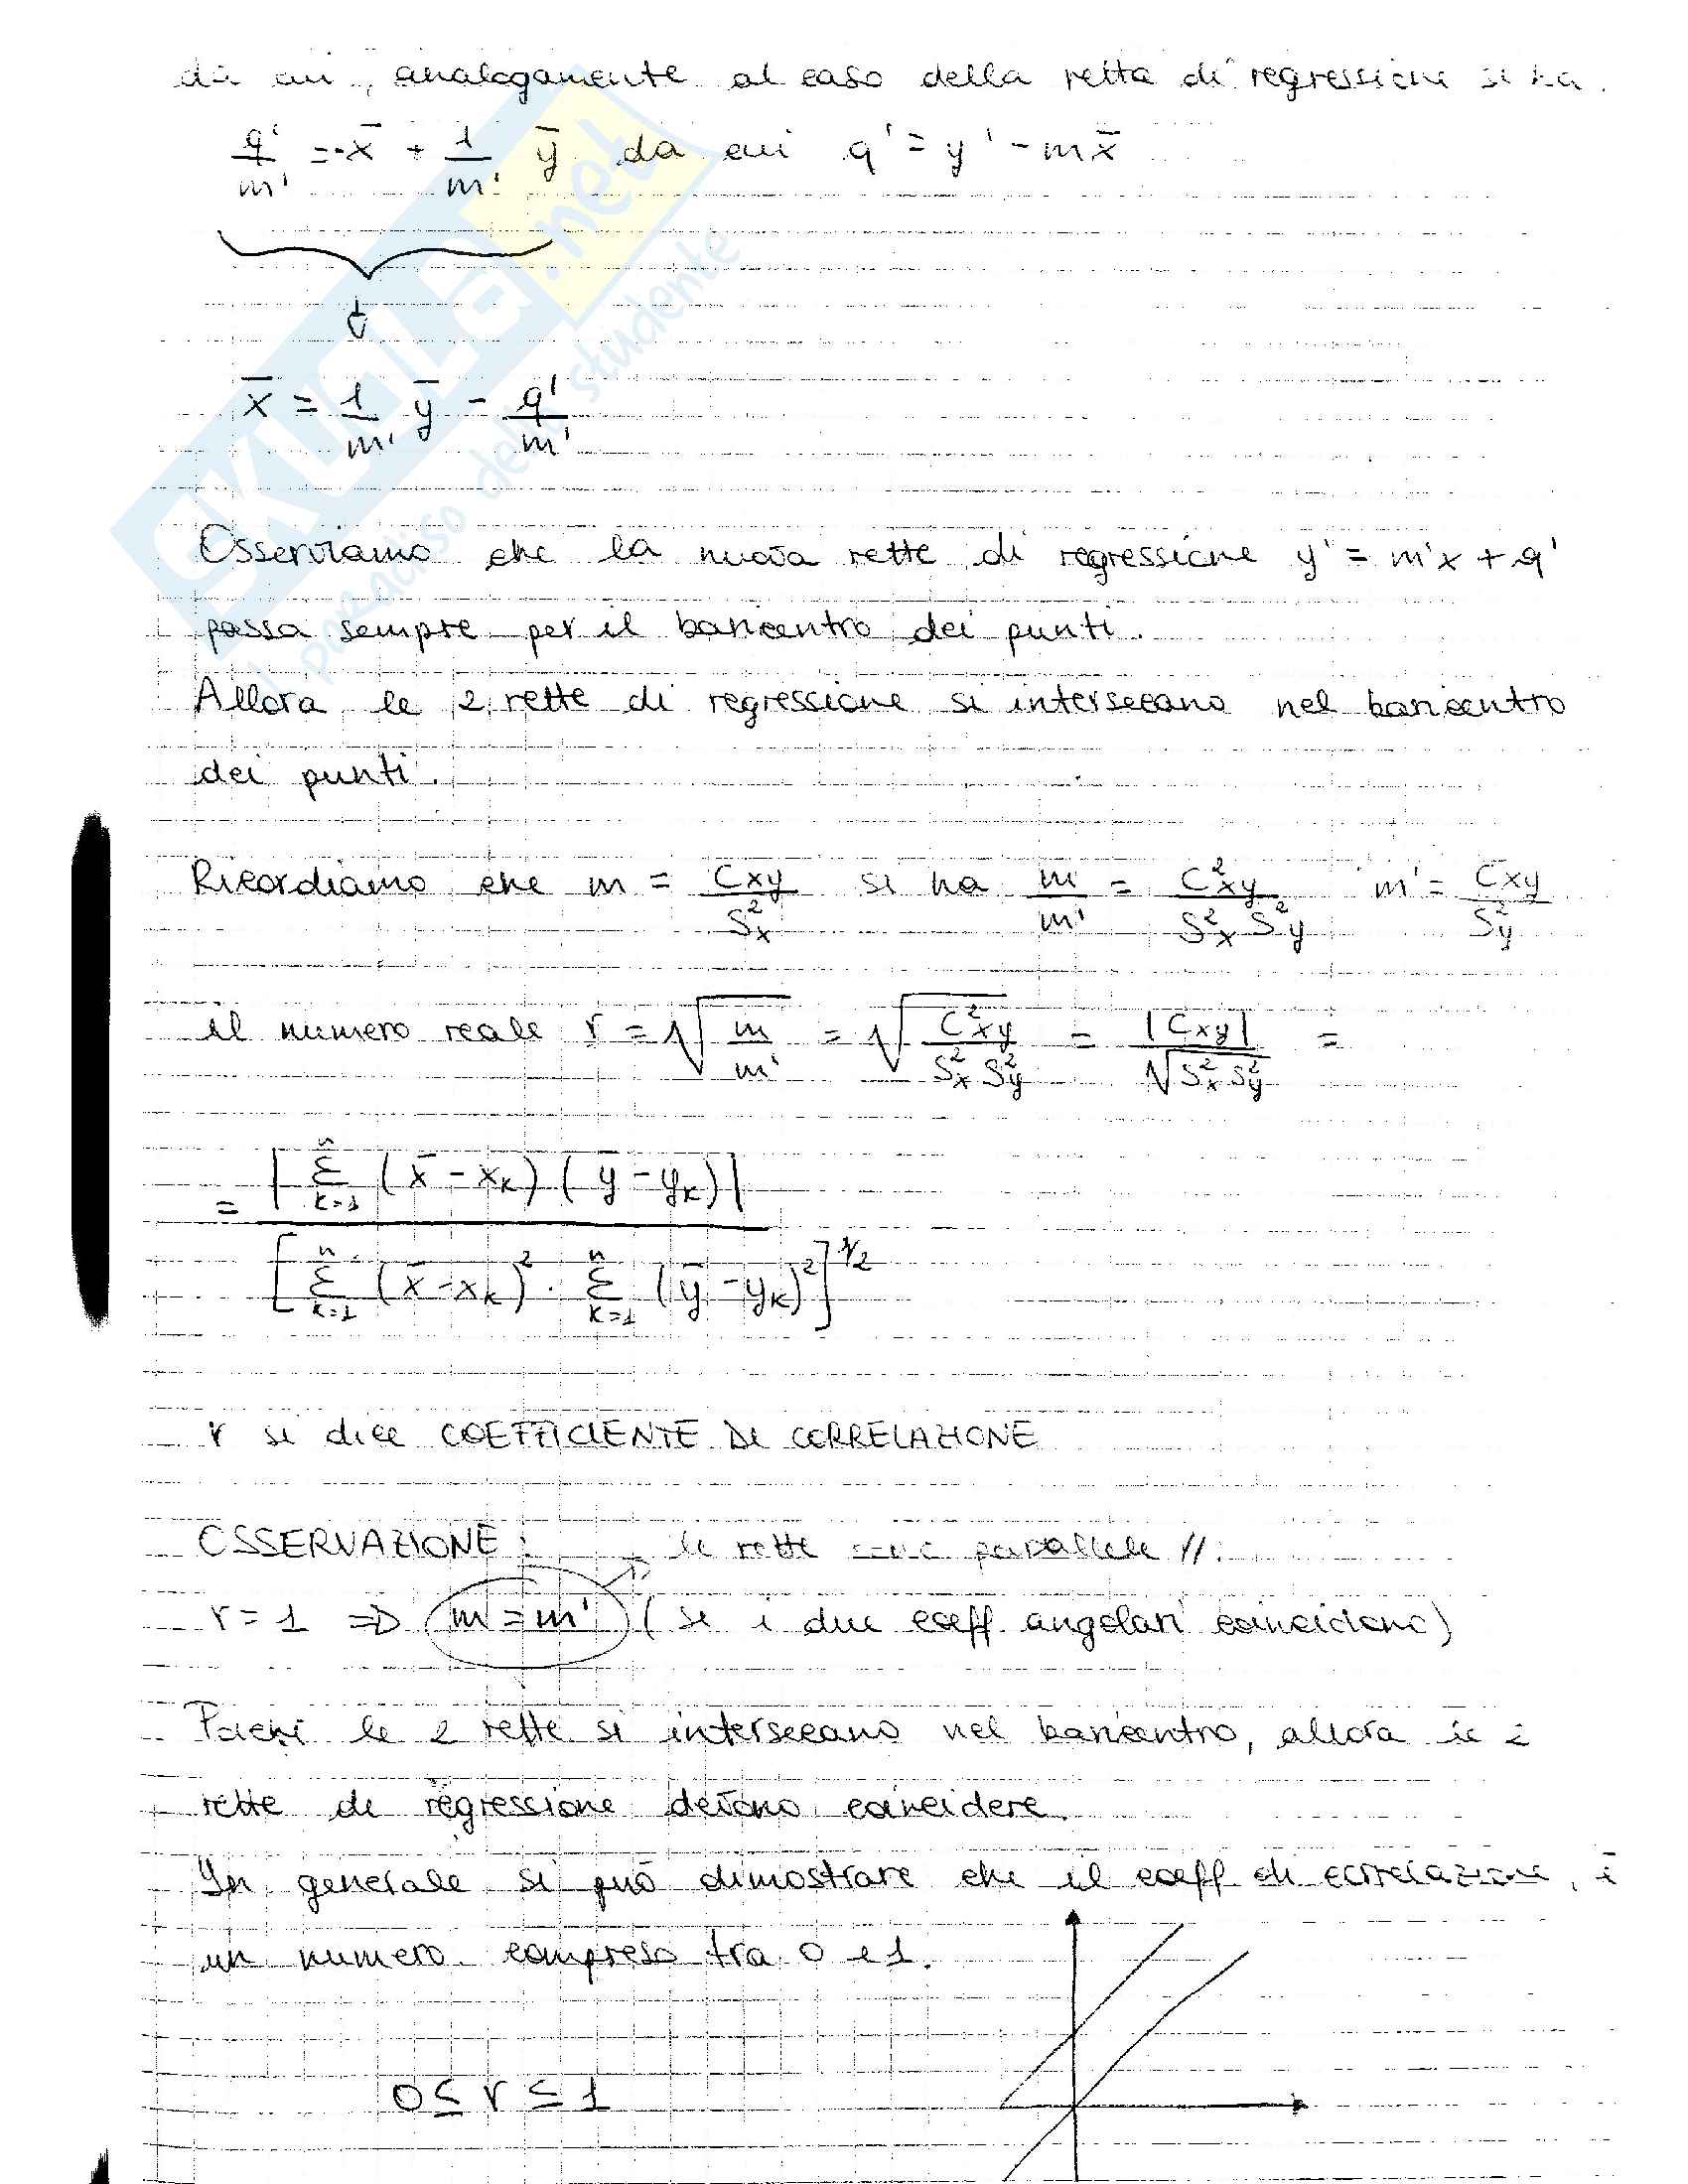 da cui, analogamente al caso della retta di regressione si ha.
q'/m' = -x̄ + 1/m' ȳ da cui q' = y' - mx̄
x̄ = 1/m' ȳ - q'/m'
Osserviamo che la nuova rette di regressione y' = m'x + q'
passa sempre per il baricentro dei punti.
Allora le 2 rette di regressione si intersecano nel baricentro
dei punti.
Ricordiamo che m = Cxy/S²x si ha m/m' = C²xy/S²x S²y m' = Cxy/S²y
il numero reale r = √(m/m') = √(C²xy/S²x S²y) = |Cxy|/√(S²x S²y) =
= |Σⁿₖ₌₁ (x̄ - xₖ)(ȳ - yₖ)| / [Σⁿₖ₌₁ (x̄ - xₖ)² · Σⁿₖ₌₁ (ȳ - yₖ)²]^1/2
r si dice COEFFICIENTE DI CORRELAZIONE
OSSERVAZIONE: le rette sono parallele //.
r = 1 ⇒ m = m' (se i due coeff angolari coincidono)
Poichè le 2 rette si intersecano nel baricentro, allora le 2
rette di regressione devono coincidere.
In generale si può dimostrare che il coeff di correlazione, è
un numero compreso tra 0 e 1.
0 ≤ r ≤ 1
SKUOLA.net
il paradiso dello studente